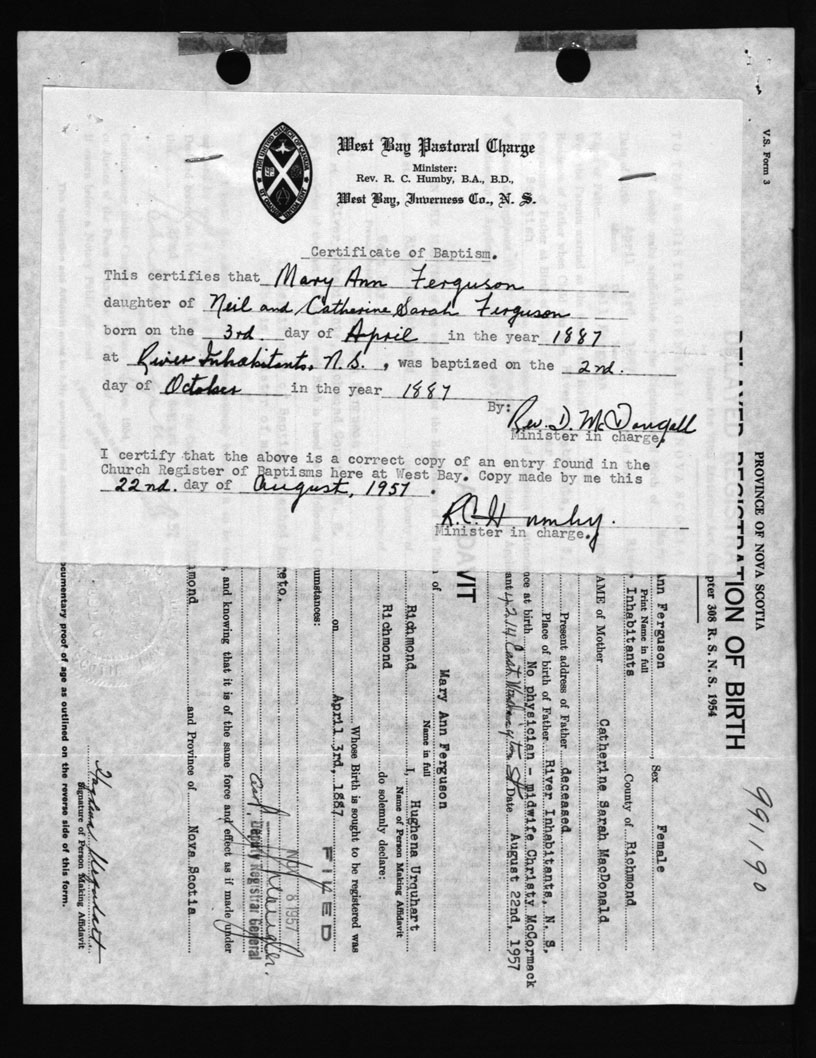 West Bay Pastoral Charge
Minister:
Rev. R. C. Humby, B.A., B.D.,
West Bay, Inverness Co., N. S.
Certificate of Baptism.
This certifies that Mary Ann Ferguson
daughter of Neil and Catherine Sarah Ferguson
born on the 3rd day of April in the year 1887
at River Inhabitants, N.S. , was baptized on the 2nd.
day of October in the year 1887
By: Rev. D. McDougall
Minister in charge.
I certify that the above is a correct copy of an entry found in the
Church Register of Baptisms here at West Bay. Copy made by me this
22nd. day of August, 1957 .
R.C. Humby.
Minister in charge.
V.S. Form 3
PROVINCE OF NOVA SCOTIA
DELAYED REGISTRATION OF BIRTH
pter 308 R. S. N. S. 1954
991190
nn Ferguson Sex Female
Print Name in full
Inhabitants County of Richmond
AME of Mother Catherine Sarah MacDonald
Present address of Father deceased
Place of birth of Father River Inhabitants, N. S.
nce at birth No physician - midwife Christy McCormack
ant 4214 East Washington St Date August 22nd, 1957
VIT
of Mary Ann Ferguson
Name in full
Richmond I, Hughena Urquhart
Name of Person Making Affidavit
Richmond do solemnly declare:
Whose Birth is sought to be registered was
on April 3rd, 1887
umstances:
FILED
NOV 8 1957
eto.
Deputy Registrar General
, and knowing that it is of the same force and effect as if made under
mond and Province of Nova Scotia
Hughena Urquhart
Signature of Person Making Affidavit
ocumentary proof of age as outlined on the reverse side of this form.